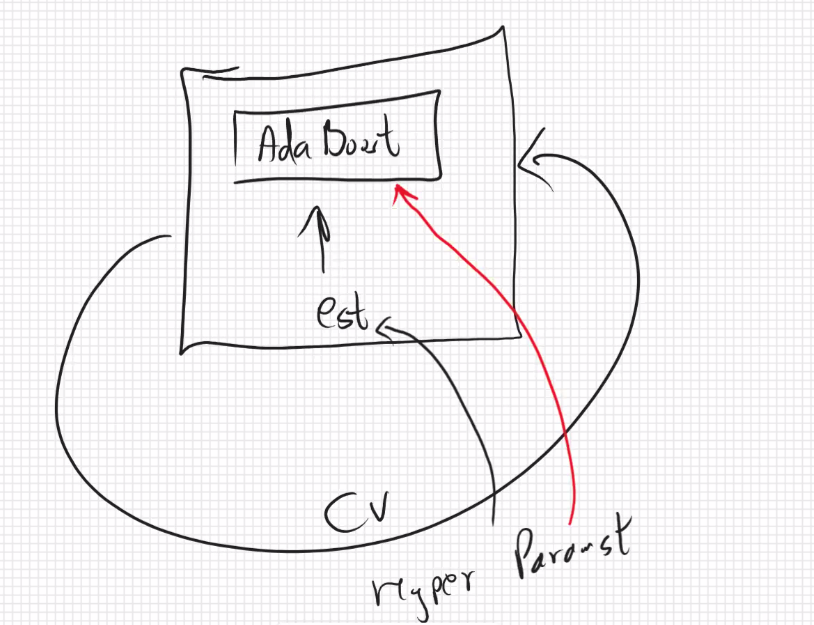 Ada Boost
est
CV
Hyper Paramst